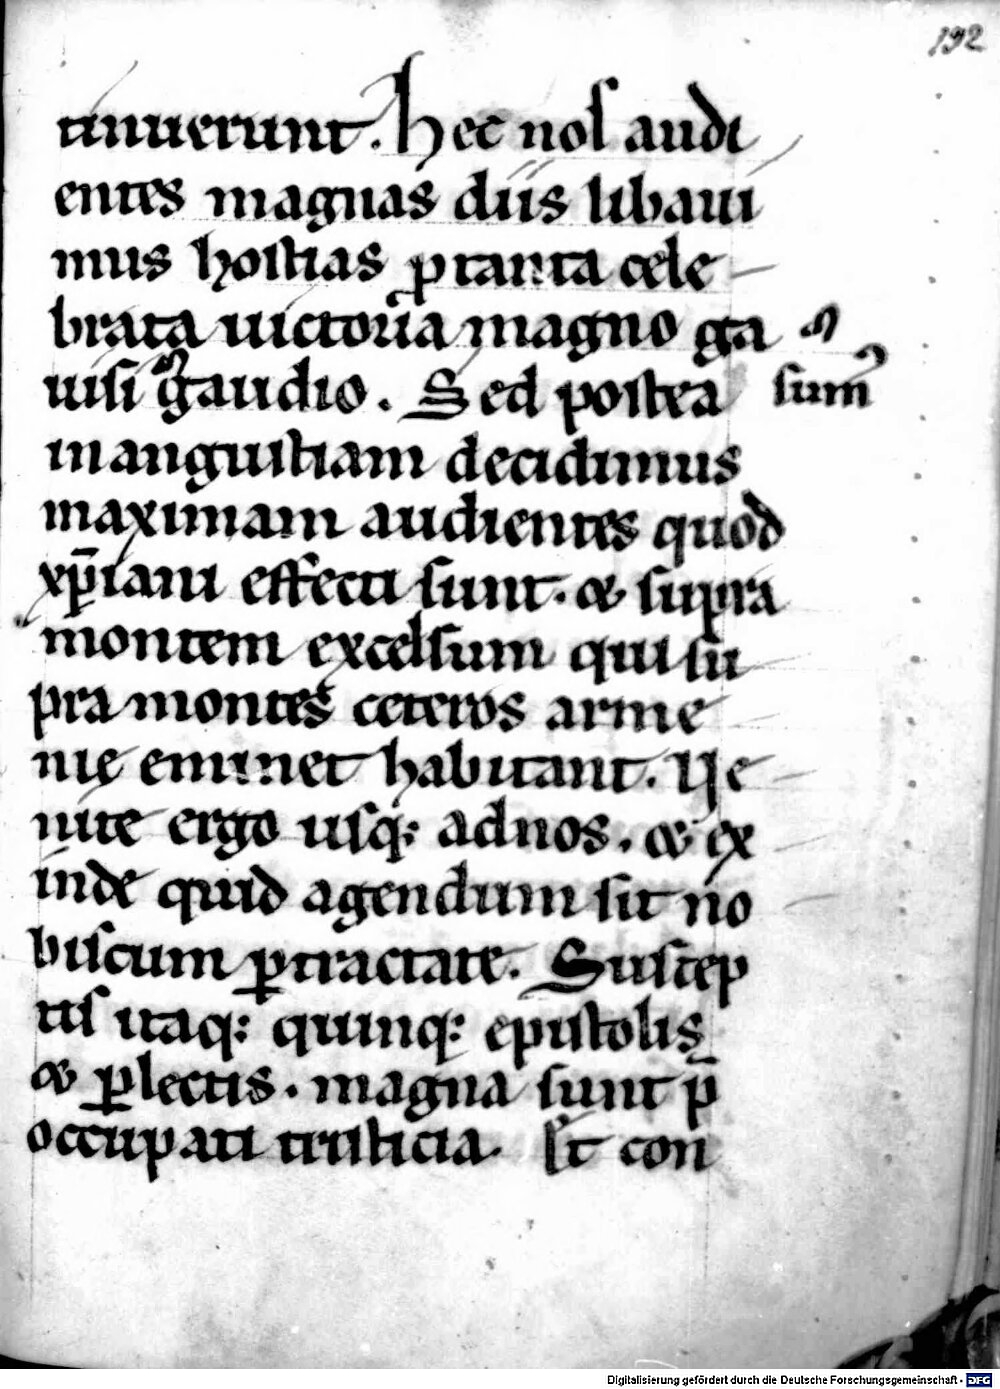 132
tinuerunt. Hec nos audi
entes magnas diis libaui
mus hostias ꝓ tanta cele
brata uictoria magno ga
uisi gͣudio. Sed postea sumꝰ
in angustiam decidimus
maximam audientes quod
xp̄iani effecti sunt. & supra
montem excelsum qui su
pra montes ceteros arme
nię eminet habitant. Ve
nite ergo usq; ad nos. & ex
inde quid agendum sit no
biscum ꝑtractate. Suscep
tis itaq; quinq; epistolis
& ꝑlectis. magna sunt p̄
occupati tristicia. St con
Digitalisierung gefördert durch die Deutsche Forschungsgemeinschaft - DFG